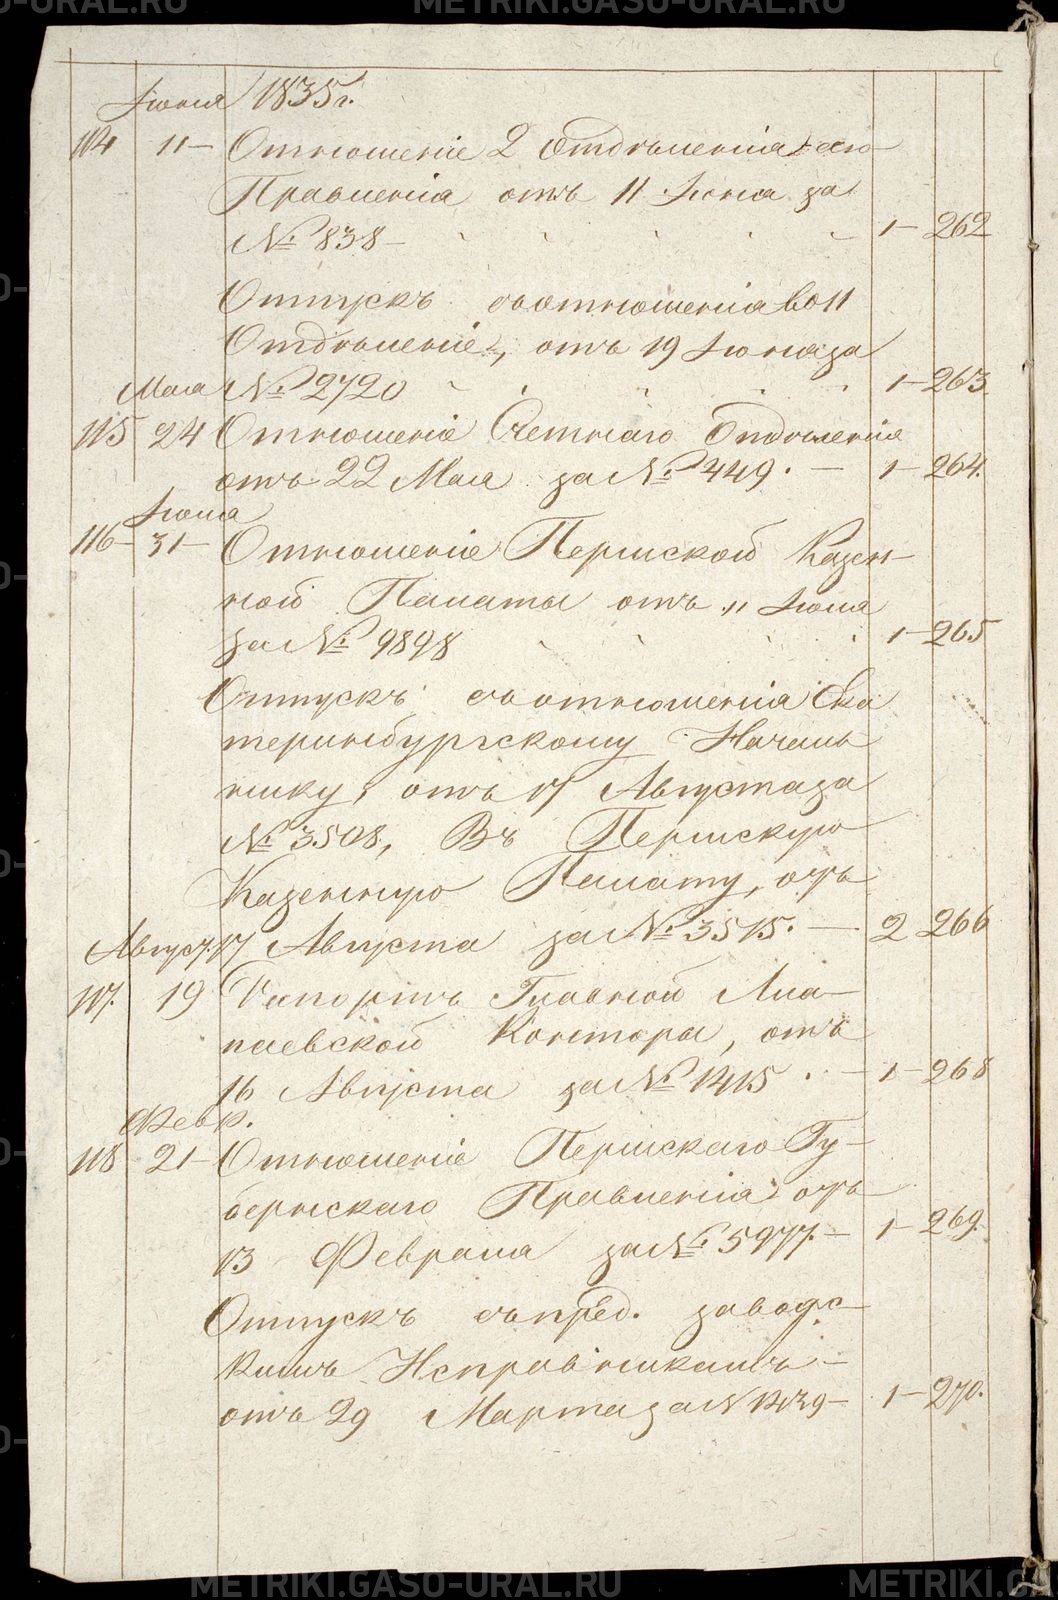 METRIKI.GASO-URAL.RU
Іюня 1835 г.
114 11 — Отношеніе 2 Отдѣленія сего
Правленія отъ 11 Іюня за
№ 838 — 1 — 262
Отпускъ съ отношенія во 11
Отдѣленіе, отъ 19 Іюня за
Мая № 2720 1 — 263.
115 24 Отношеніе Счетнаго Отдѣленія
отъ 22 Мая за № 449. — 1 — 264.
Іюля
116 — 31 — Отношеніе Пермской Казен-
ной Палаты отъ 11 Іюля
за № 9898 1 — 265
Отпускъ съ отношенія Ека
теринбургскому Началь
нику, отъ 17 Августа за
№ 3508, Въ Пермскую
Казенную Палату, отъ
Август. 17 Августа за № 3515. — 2 266
117. 19 Рапортъ Главной Ала-
паевской Конторы, отъ
16 Августа за № 1415. — 1 — 268
Февр.
118 21 — Отношеніе Пермскаго Гу-
бернскаго Правленія отъ
13 Февраля за № 5977. — 1 — 269.
Отпускъ съ пред. заводс-
кимъ Исправникамъ —
отъ 29 Марта за № 1239 — 1 — 270.
METRIKI.GASO-URAL.RU
METRIKI.GA